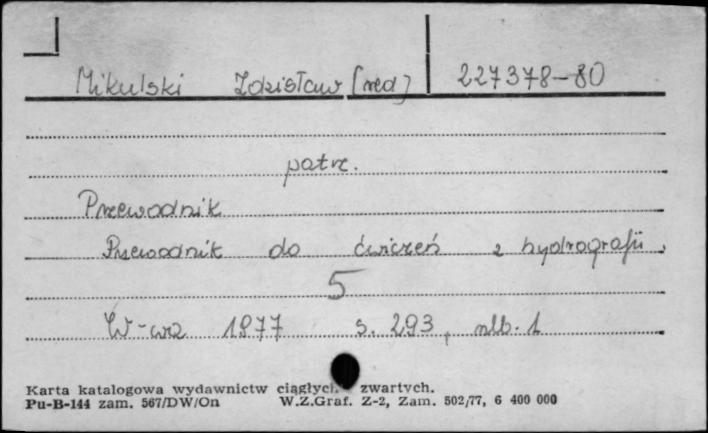 Mikulski Zdzisław [red] 227378-80
patrz.
Przewodnik
Przewodnik do ćwiczeń z hydrografii.
5
W-wa 1977 s. 293, nlb. 1
Karta katalogowa wydawnictw ciągłych zwartych.
Pu-B-144 zam. 567/DW/On W.Z.Graf. Z-2, Zam. 502/77, 6 400 000